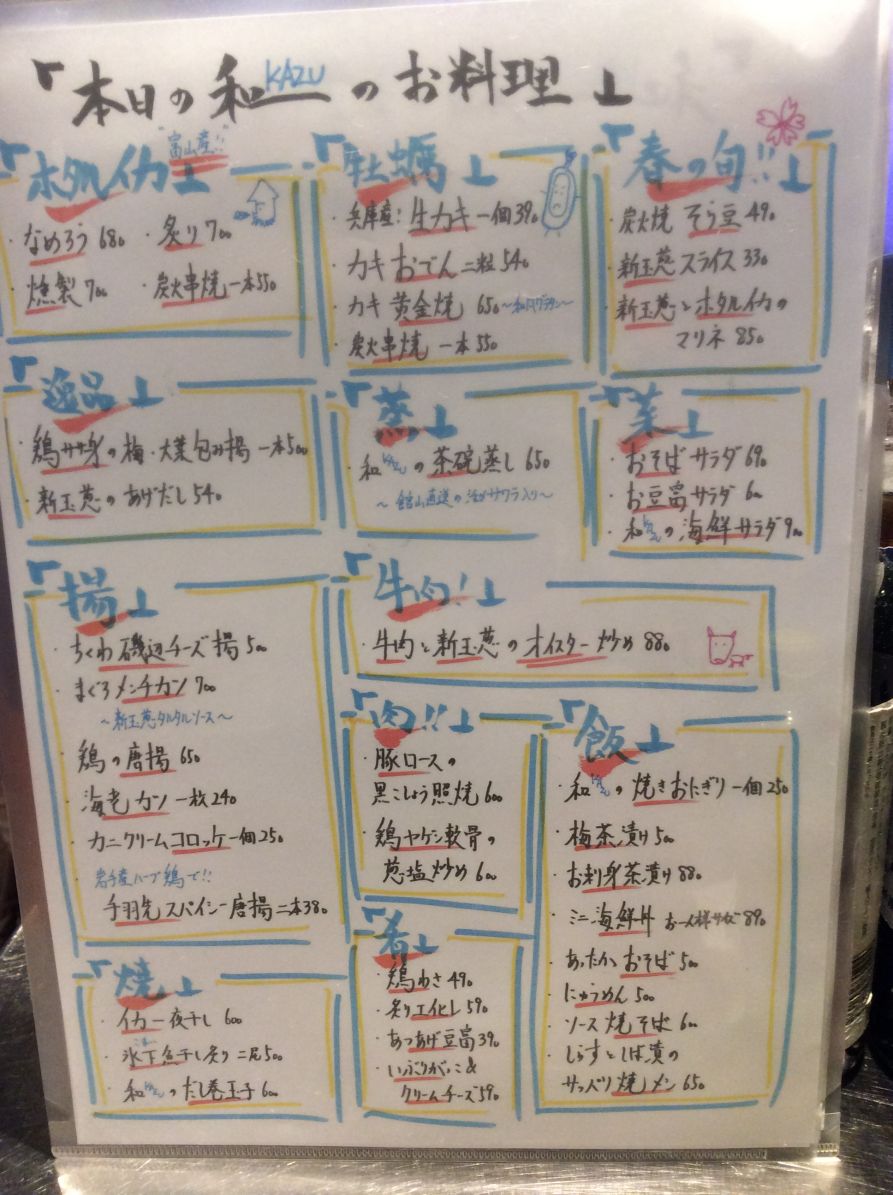 『本日の和KAZUのお料理』
『ホタルイカ』"富山産!!"
・なめろう 680 ・炙り 700
・燻製 700 ・炭火串焼 一本 550
『牡蠣』
・兵庫産! 生カキ 一個 390
・カキおでん 二粒 540
・カキ 黄金焼 650 ~和風グラタン~
・炭火串焼 一本 550
『春の旬!!』
・炭火焼 そら豆 490
・新玉葱スライス 330
・新玉葱とホタルイカの
マリネ 850
『逸品』
・鶏ササ身の梅・大葉包み揚 一本 500
・新玉葱のあげだし 540
『蒸』
・和の茶碗蒸し 650
~館山直送の活〆サワラ入り~
『菜』
・おそばサラダ 690
・お豆富サラダ 600
・和の海鮮サラダ 900
『揚』
・ちくわ磯辺チーズ揚 500
・まぐろメンチカツ 700
~新玉葱タルタルソース~
・鶏の唐揚 650
・海老カツ 一枚 240
・カニクリームコロッケ 一個 250
岩手産ハーブ鶏で!!
・手羽先スパイシー唐揚 二本 380
『牛肉!』
・牛肉と新玉葱のオイスター炒め 880
『肉!!』
・豚ロースの
黒こしょう照焼 600
・鶏ヤゲン軟骨の
葱塩炒め 600
『飯』
・和の焼きおにぎり 一個 250
・梅茶漬け 500
・お刺身茶漬け 880
・ミニ海鮮丼 お一人様サイズ 890
・あったかおそば 500
・にゅうめん 500
・ソース焼そば 600
・しらすとしば漬の
サッパリ焼メン 650
『焼』
・イカ一夜干し 600
・氷下魚干し炙り 二尾 500
・和のだし巻玉子 600
『肴』
・鶏わさ 490
・炙りエビし 590
・あつあげ豆富 390
・いぶりがっこ&
クリームチーズ 590